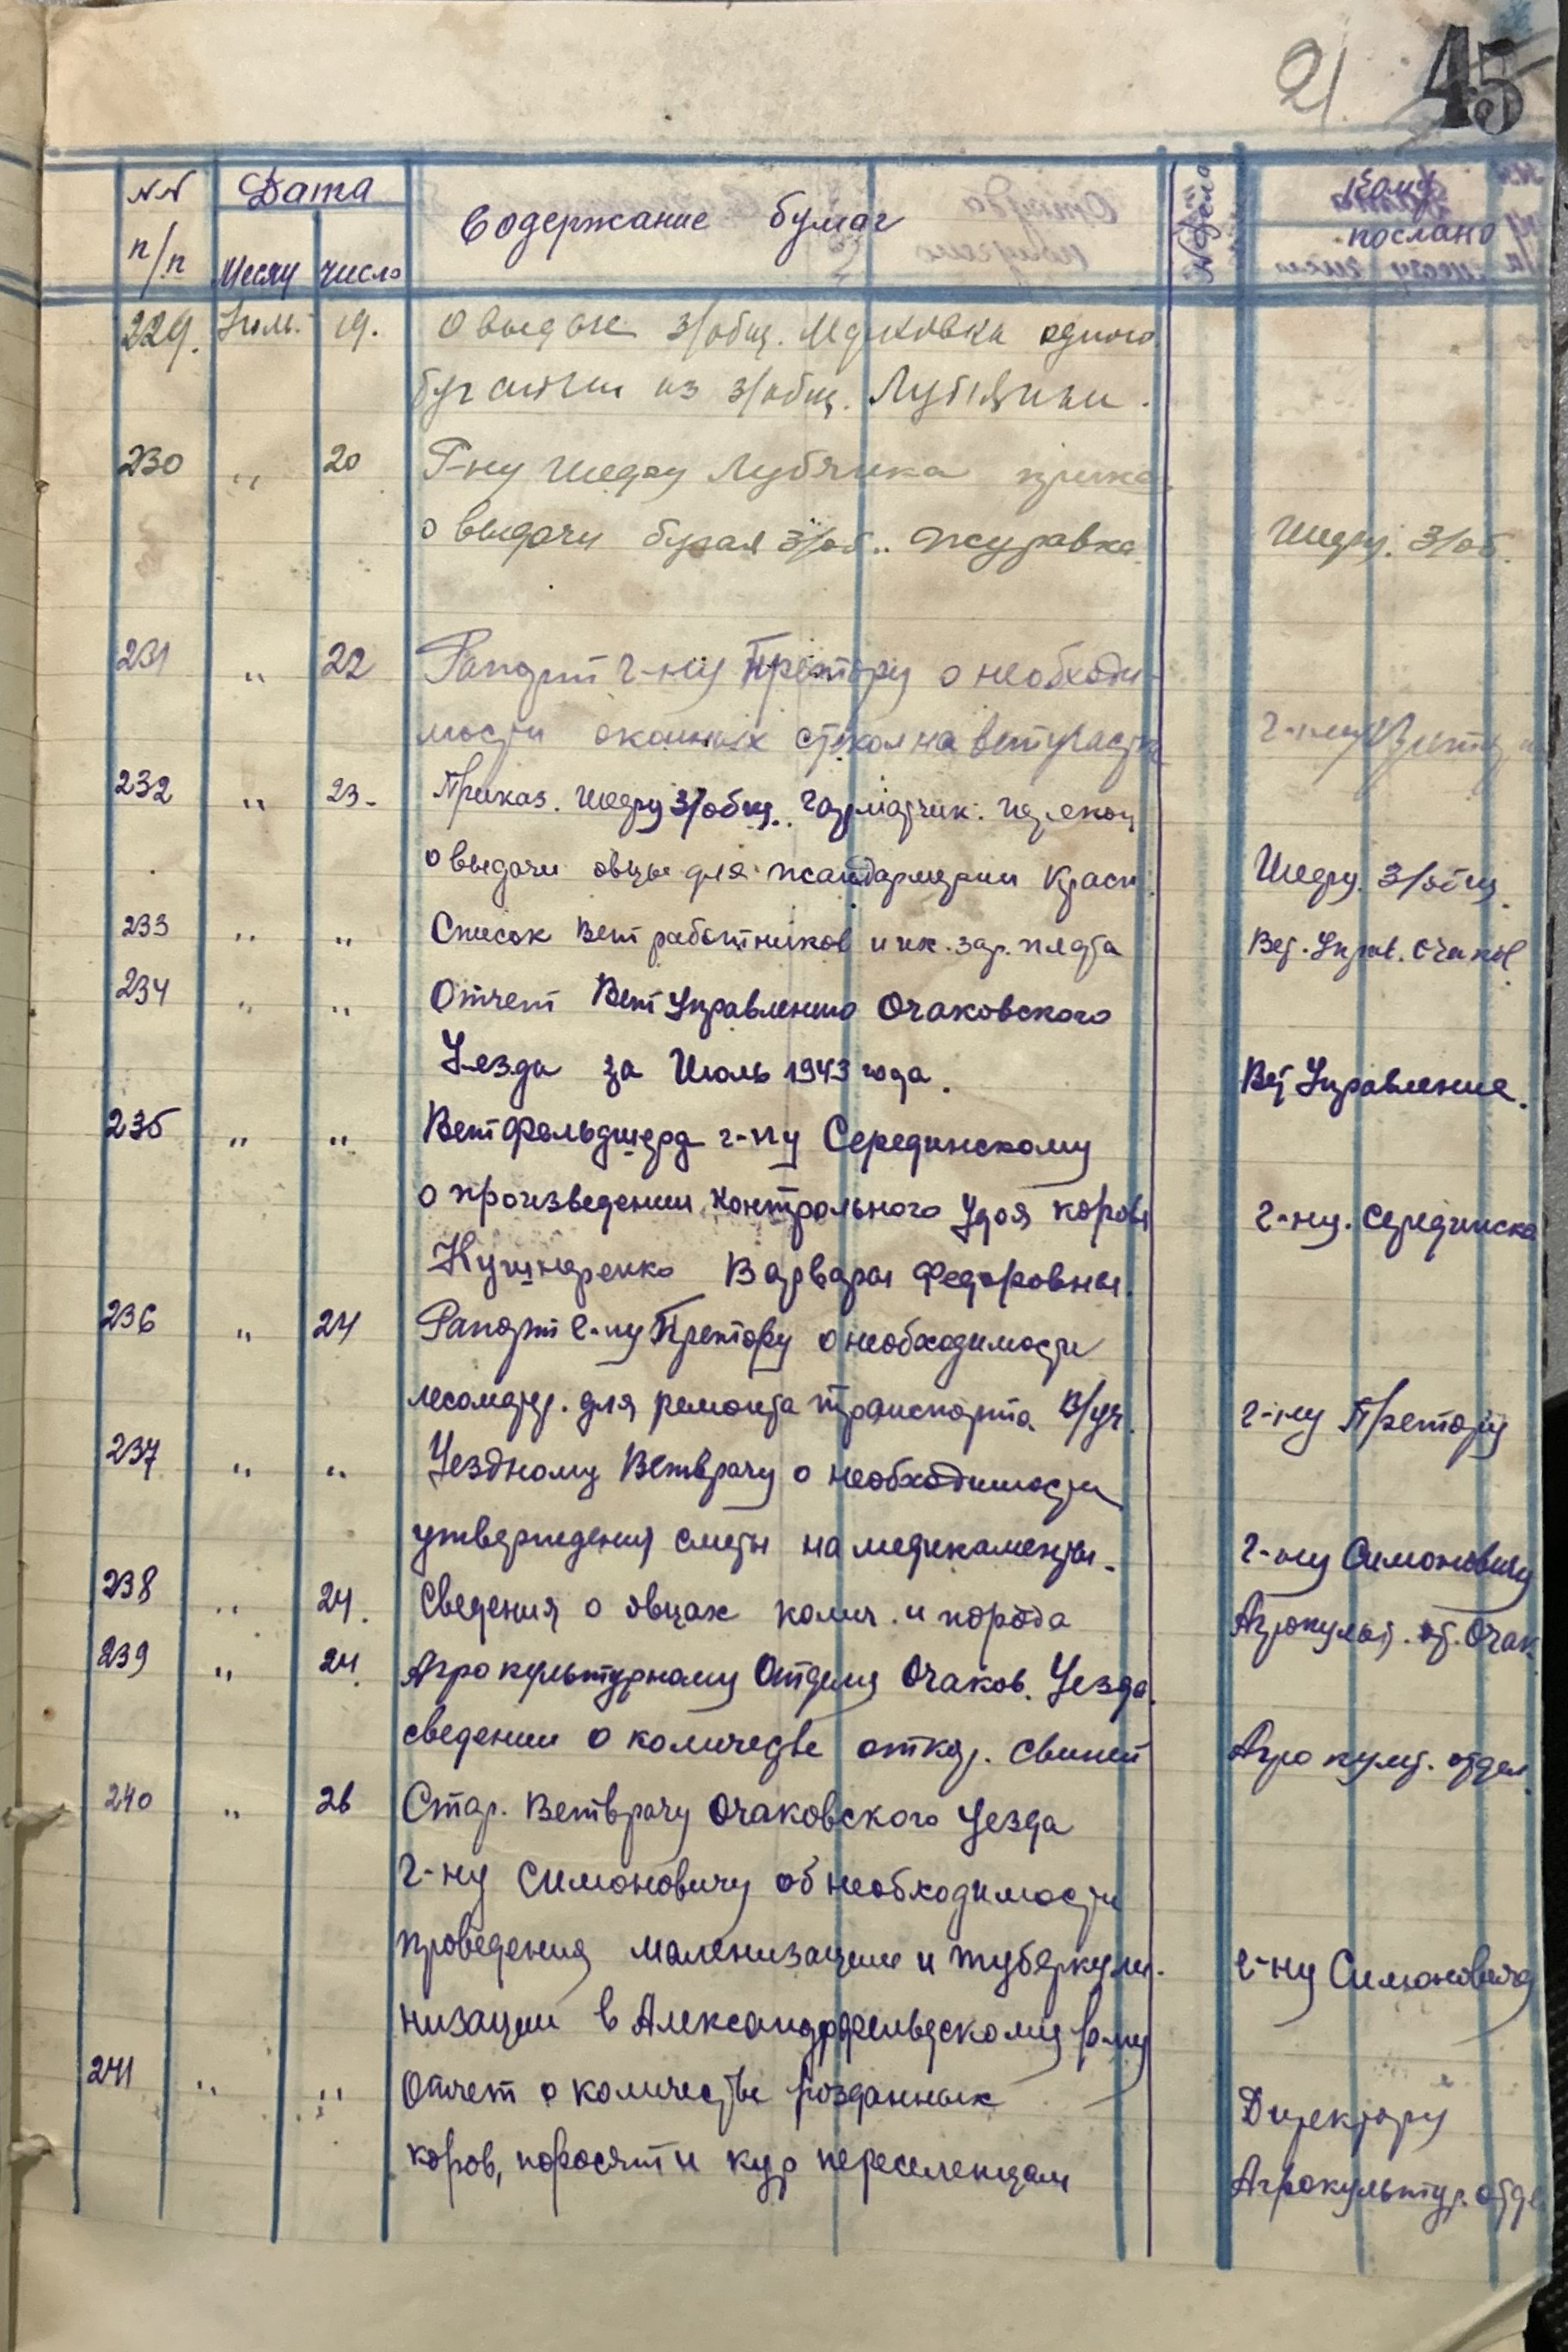 21 45
NN п/п Дата Содержание бумаг № дела Кому послано
Месяц число
229. Июль. 19. О выдаче з/общ. одного
бугая из з/общ. Лубянки.
230 " 20 Г-ну Шефу Лубянка приказ
о выдачи бугая з/об.. Журавка Шефу. З/об.
231 " 22 Рапорт г-ну Претору о необходи-
мости оконных стекол на ветучастк г-ну
232 " 23- Приказ. Шефу З/общ..
о выдачи овцы для жандармерии Красн. Шефу. З/общ.
233 " " Список Вет работников и их. зар. плата Вет. Управ. Очаков
234 " " Отчет Вет Управлению Очаковского
Уезда за Июль 1943 года. Вет Управление.
235 " " Ветфельдшера г-ну Серединскому
о произведении контрольного удоя коровы г-ну. Серединско
Кушнеренко Варвары Федоровны.
236 " 24 Рапорт г-ну Претору о необходимости
лесоматер. для ремонта транспорта В/уч. г-ну Претору
237 " " Уездному Ветврачу о необходимости
утверждения сметы на медикаменты. г-ну Симоновичу
238 " 24. Сведения о овцах колич. и порода Агрокульт. от. Очак.
239 " 24. Агрокультурному Отделу Очаков. Уезда.
сведении о количестве откор. свиней Агрокульт. отдел.
240 " 26 Стар. Ветврачу Очаковского Уезда
г-ну Симоновичу об необходимости
проведения маленизации и туберкули- г-ну Симоновичу
низации в Александрфельдскому р-му
241 " " Отчет о количестве розданных Директору
коров, поросят и кур переселенцам Агрокультур. отде